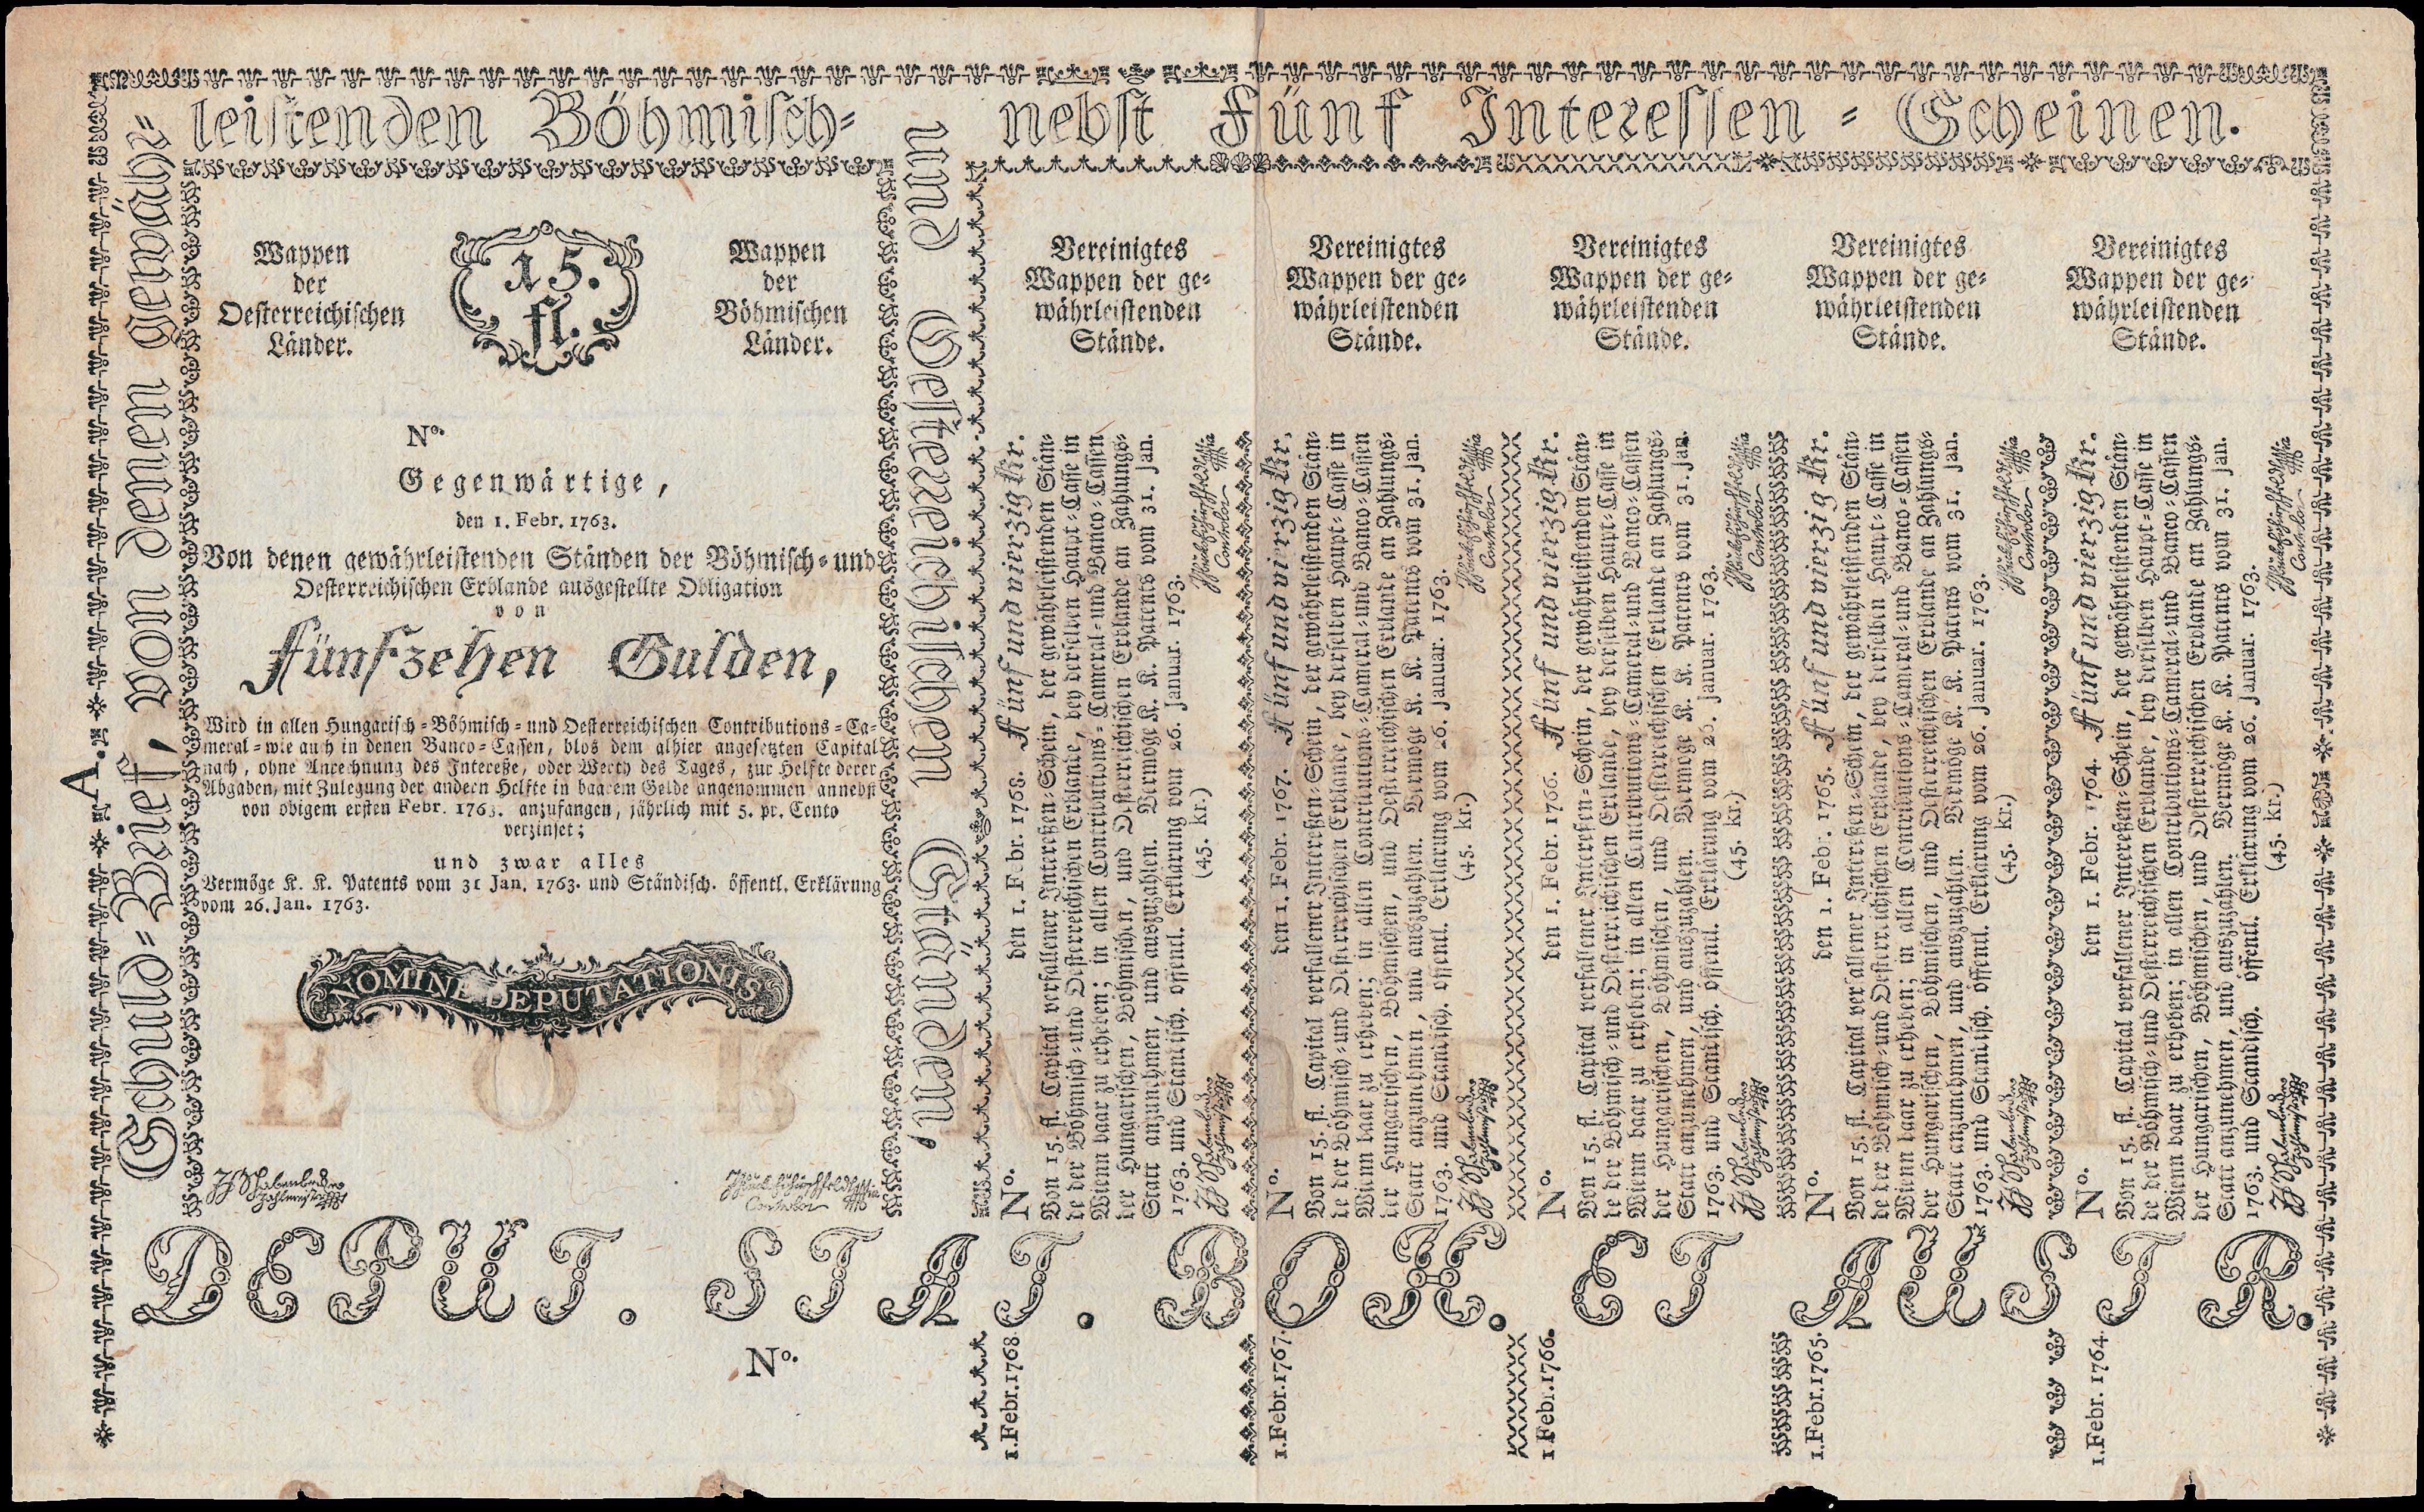 A.
Schuld=Brief, von denen Gewähr=
leistenden Böhmisch=
und Oesterreichischen Ständen,
nebst Fünf Interessen = Scheinen.
Wappen
der
Oesterreichischen
Länder.
15.
fl.
Wappen
der
Böhmischen
Länder.
No.
Gegenwärtige,
den 1. Febr. 1763.
Von denen gewährleistenden Ständen der Böhmisch= und
Oesterreichischen Erblande ausgestellte Obligation
von
Fünfzehen Gulden,
Wird in allen Hungarisch = Böhmisch = und Oesterreichischen Contributions = Ca=
meral = wie auch in denen Banco = Cassen, blos dem alhier angesetzten Capital
nach, ohne Anrechnung des Intereße, oder Werth des Tages, zur Helfte derer
Abgaben, mit Zulegung der andern Helfte in baarem Gelde angenommen annebst
von obigem ersten Febr. 1763. anzufangen, jährlich mit 5. pr. Cento
verzinset;
und zwar alles
Vermöge K. K. Patents vom 31 Jan. 1763. und Ständisch. öffentl. Erklärung
vom 26. Jan. 1763.
NOMINE DEPUTATIONIS
Zahlmeister
Controlor
Vereinigtes
Wappen der ge=
währleistenden
Stände.
No. den 1. Febr. 1768. Fünf und vierzig Kr.
Von 15. fl. Capital verfallener Intereßen=Schein, der gewährleistenden Stän=
de der Böhmisch = und Oesterreichischen Erblande, bey derselben Haupt=Casse in
Wienn baar zu erheben; in allen Contributions = Cameral = und Banco = Cassen
der Hungarischen, Böhmischen, und Oesterreichischen Erblande an Zahlungs=
Statt anzunehmen, und auszuzahlen. Vermöge K. K. Patents vom 31. Jan.
1763. und Ständisch. öffentl. Erklärung vom 26. Januar. 1763.
(45. kr.)
Zahlmeister
Controlor
Vereinigtes
Wappen der ge=
währleistenden
Stände.
No. den 1. Febr. 1767. Fünf und vierzig Kr.
Von 15. fl. Capital verfallener Intereßen=Schein, der gewährleistenden Stän=
de der Böhmisch = und Oesterreichischen Erblande, bey derselben Haupt=Casse in
Wienn baar zu erheben; in allen Contributions = Cameral = und Banco = Cassen
der Hungarischen, Böhmischen, und Oesterreichischen Erblande an Zahlungs=
Statt anzunehmen, und auszuzahlen. Vermöge K. K. Patents vom 31. Jan.
1763. und Ständisch. öffentl. Erklärung vom 26. Januar. 1763.
(45. kr.)
Zahlmeister
Controlor
Vereinigtes
Wappen der ge=
währleistenden
Stände.
No. den 1. Febr. 1766. Fünf und vierzig Kr.
Von 15. fl. Capital verfallener Intereßen=Schein, der gewährleistenden Stän=
de der Böhmisch = und Oesterreichischen Erblande, bey derselben Haupt=Casse in
Wienn baar zu erheben; in allen Contributions = Cameral = und Banco = Cassen
der Hungarischen, Böhmischen, und Oesterreichischen Erblande an Zahlungs=
Statt anzunehmen, und auszuzahlen. Vermöge K. K. Patents vom 31. Jan.
1763. und Ständisch. öffentl. Erklärung vom 26. Januar. 1763.
(45. kr.)
Zahlmeister
Controlor
Vereinigtes
Wappen der ge=
währleistenden
Stände.
No. den 1. Febr. 1765. Fünf und vierzig Kr.
Von 15. fl. Capital verfallener Intereßen=Schein, der gewährleistenden Stän=
de der Böhmisch = und Oesterreichischen Erblande, bey derselben Haupt=Casse in
Wienn baar zu erheben; in allen Contributions = Cameral = und Banco = Cassen
der Hungarischen, Böhmischen, und Oesterreichischen Erblande an Zahlungs=
Statt anzunehmen, und auszuzahlen. Vermöge K. K. Patens vom 31. Jan.
1763. und Ständisch. öffentl. Erklärung vom 26. Januar. 1763.
(45. kr.)
Zahlmeister
Controlor
Vereinigtes
Wappen der ge=
währleistenden
Stände.
No. den 1. Febr. 1764. Fünf und vierzig Kr.
Von 15. fl. Capital verfallener Intereßen=Schein, der gewährleistenden Stän=
de der Böhmisch = und Oesterreichischen Erblande, bey derselben Haupt=Casse in
Wienn baar zu erheben; in allen Contributions = Cameral = und Banco = Cassen
der Hungarischen, Böhmischen, und Oesterreichischen Erblande an Zahlungs=
Statt anzunehmen, und auszuzahlen. Vermöge K. K. Patents vom 31. Jan.
1763. und Ständisch. öffentl. Erklärung vom 26. Januar. 1763.
(45. kr.)
Zahlmeister
Controlor
DEPUT. STAT. BOH. ET AUSTR.
No.
1. Febr. 1768.
1. Febr. 1767.
1. Febr. 1766.
1. Febr. 1765.
1. Febr. 1764.